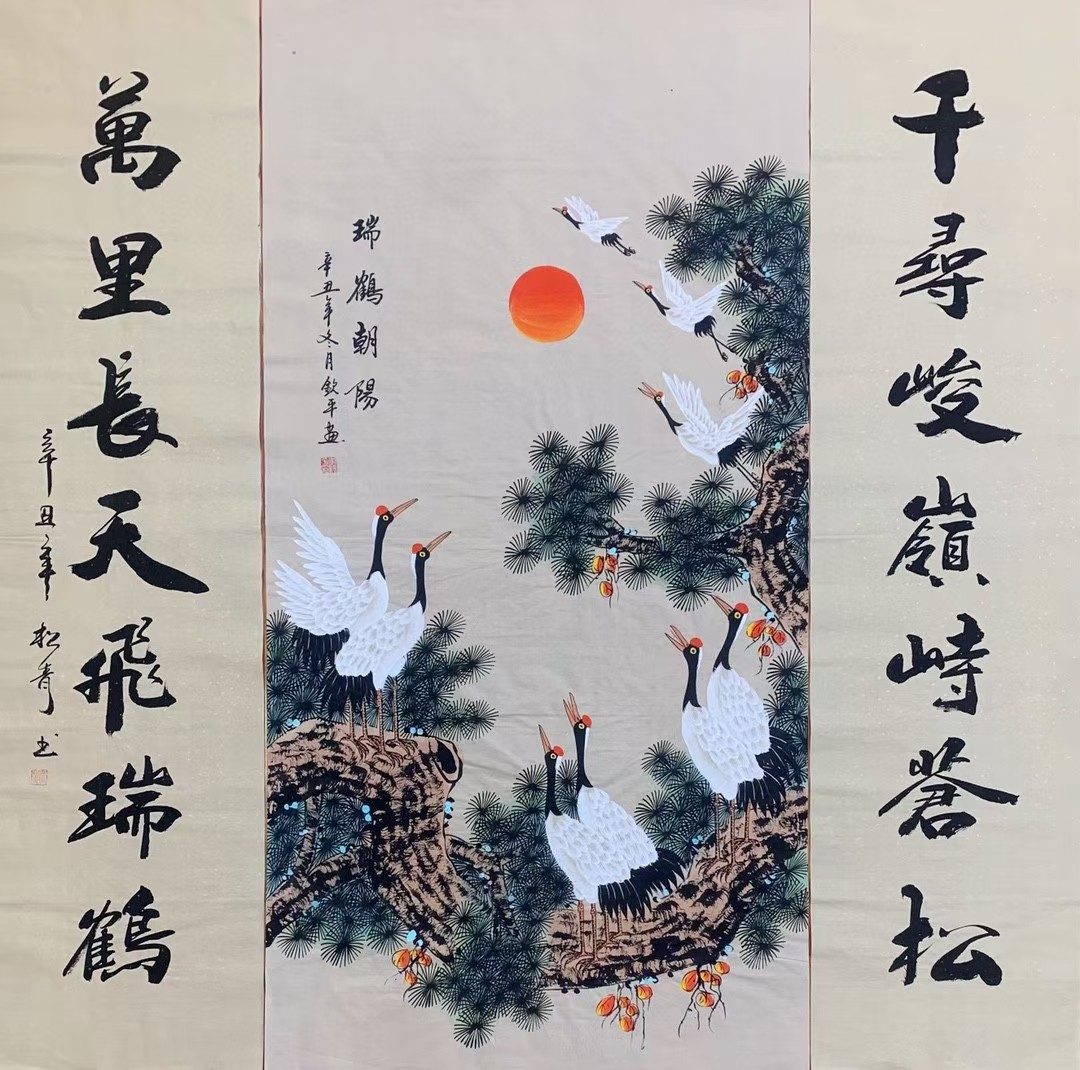 千尋峻嶺峙蒼松
瑞鶴朝陽
辛丑年冬月欽平畫
萬里長天飛瑞鶴
辛丑年松青书